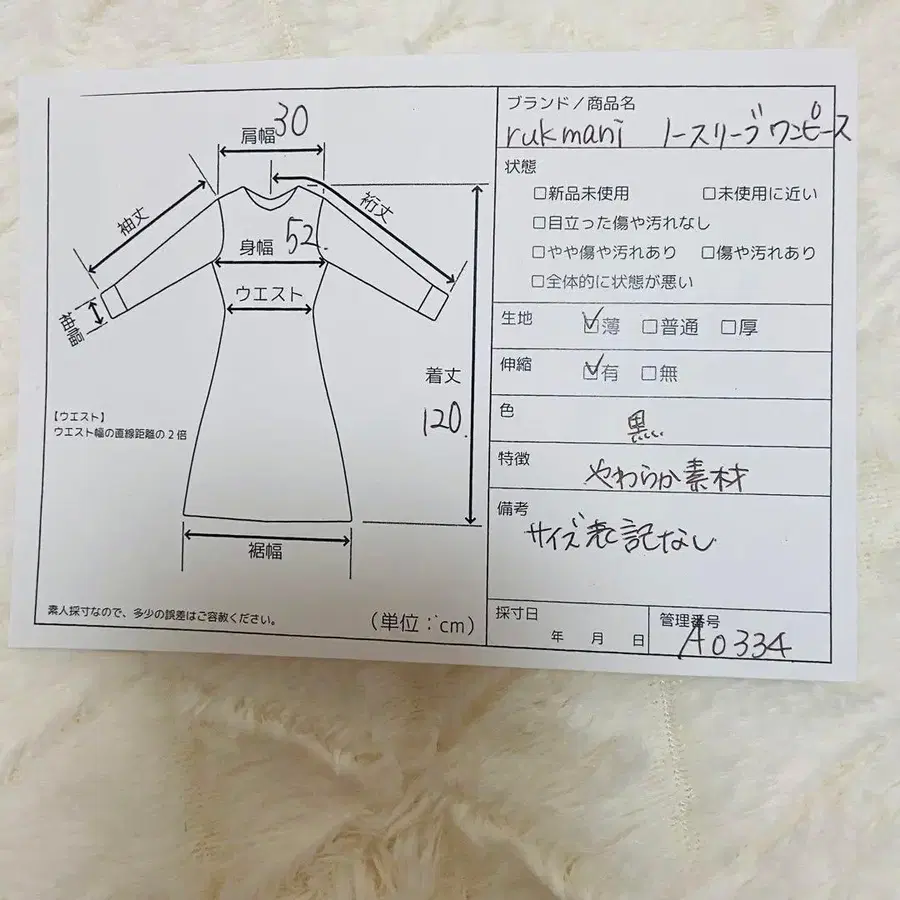 肩幅 30
袖丈
裄丈
身幅 52.
ウエスト
袖幅
着丈
120.
【ウエスト】
ウエスト幅の直線距離の2倍
裾幅
素人採寸なので、多少の誤差はご容赦ください。
(単位:cm)
ブランド/商品名
rukmani ノースリーブワンピース
状態
□新品未使用 □未使用に近い
□目立った傷や汚れなし
□やや傷や汚れあり □傷や汚れあり
□全体的に状態が悪い
生地 ☑薄 □普通 □厚
伸縮 ☑有 □無
色
黒
特徴
やわらか素材
備考
サイズ表記なし
採寸日
年 月 日
管理番号
A0334